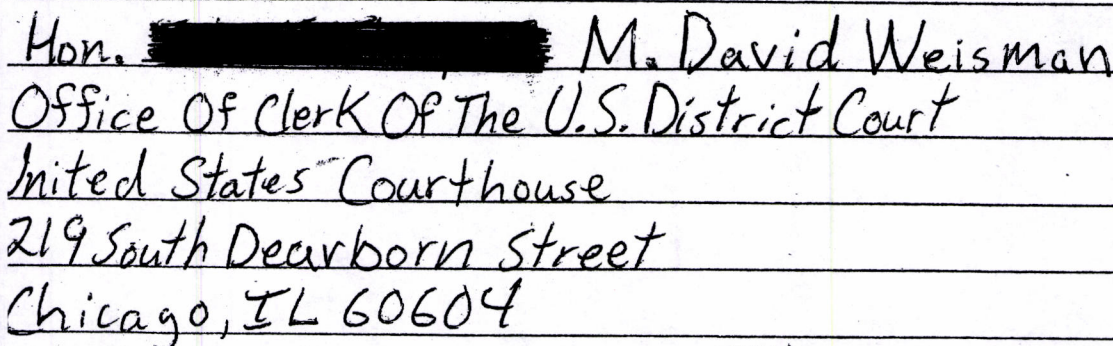 Hon. M. David Weisman
Office Of Clerk Of The U.S. District Court
United States Courthouse
219 South Dearborn Street
Chicago, IL 60604